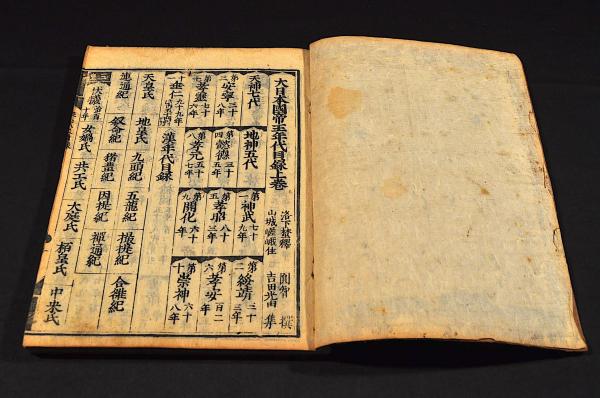 大日本國帝王年代目録上卷
洛下埜釋 圓智 撰
山城嵯峨住 吉田光由 集
天神七代 地神五代 第一 神武 七十 年 第二 綏靖 三十三年
第三 安寧 三十八年 第四 懿德 三十 年 第五 孝昭 八十三年 第六 孝安 百二年
第七 孝靈 七十六年 第八 孝元 五十 年 第九 開化 六十年 第十 崇神 六十八年
十一 垂仁 九十九年 漢年代目録
天皇氏 地皇氏 九頭紀 五龍紀 攝提紀 合雒紀
連通紀 叙命紀 循蜚紀 因提紀 禪通紀
伏犧 女媧氏 共工氏 大庭氏 栢皇氏 中央氏